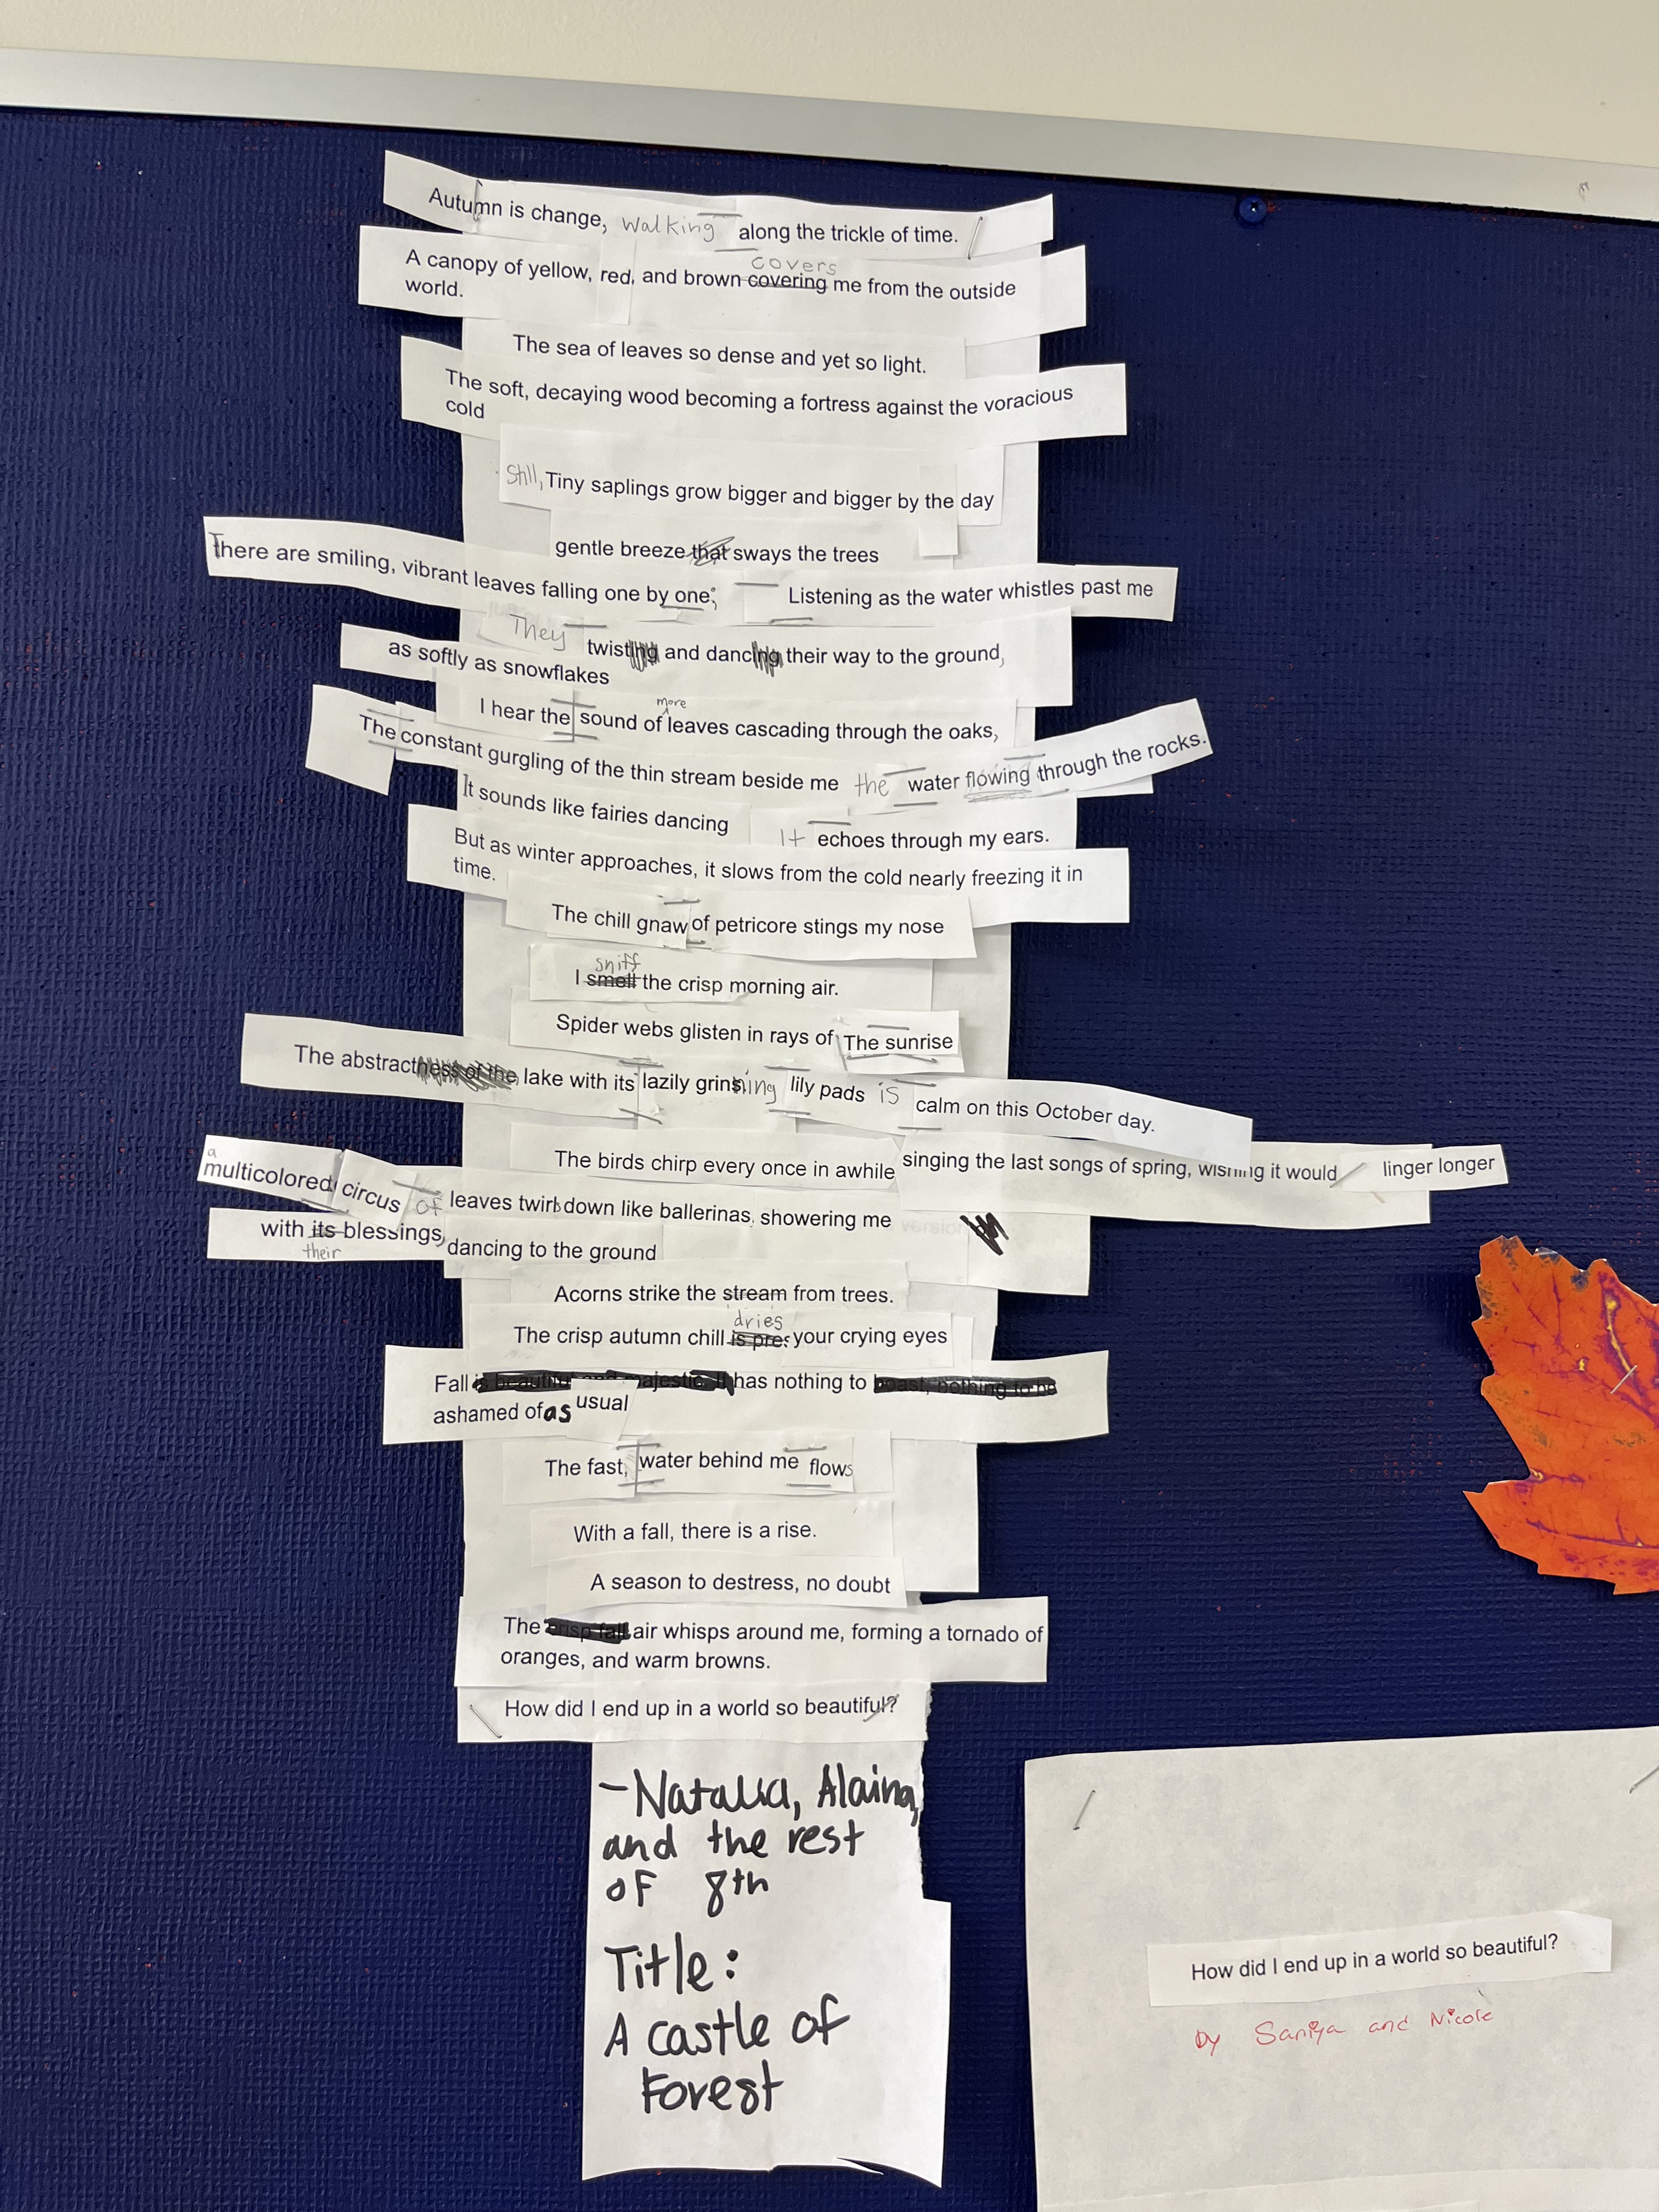 Autumn is change, walking along the trickle of time.
covers
A canopy of yellow, red, and brown covering me from the outside
world.
The sea of leaves so dense and yet so light.
The soft, decaying wood becoming a fortress against the voracious
cold
Still, Tiny saplings grow bigger and bigger by the day
gentle breeze that sways the trees
There are smiling, vibrant leaves falling one by one; Listening as the water whistles past me
They twisting and dancing their way to the ground,
as softly as snowflakes
more
I hear the sound of leaves cascading through the oaks,
The constant gurgling of the thin stream beside me the water flowing through the rocks.
It sounds like fairies dancing It echoes through my ears.
But as winter approaches, it slows from the cold nearly freezing it in
time.
The chill gnaw of petricore stings my nose
sniff
I smell the crisp morning air.
Spider webs glisten in rays of The sunrise
The abstractness of the lake with its lazily grinning lily pads is calm on this October day.
The birds chirp every once in awhile singing the last songs of spring, wishing it would linger longer
a
multicolored circus of leaves twirl down like ballerinas, showering me
with its blessings, dancing to the ground
their
Acorns strike the stream from trees.
dries
The crisp autumn chill is pre your crying eyes
Fall is beautiful and majestic. It has nothing to boast, nothing to be
ashamed of as usual
The fast, water behind me flows
With a fall, there is a rise.
A season to destress, no doubt
The crisp fall air whisps around me, forming a tornado of
oranges, and warm browns.
How did I end up in a world so beautiful?
-Natalia, Alaina,
and the rest
of 8th
Title:
A castle of
Forest
How did I end up in a world so beautiful?
by Saniya and Nicole